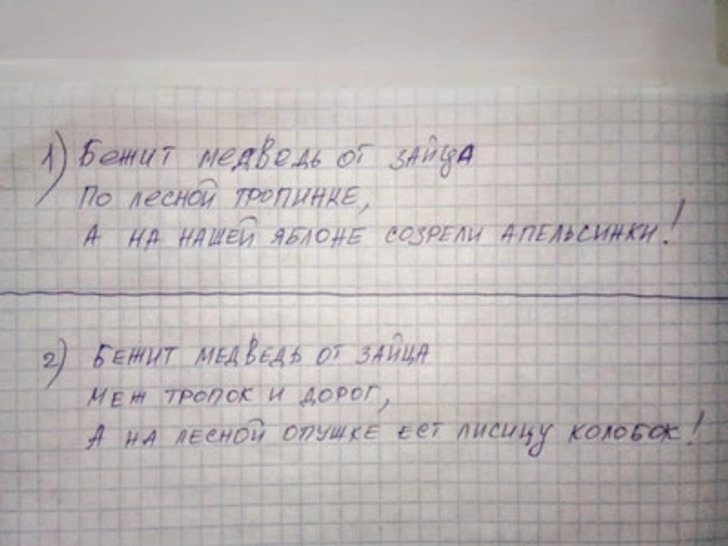 1) Бежит медведь от зайца
По лесной тропинке,
А на нашей яблоне созрели апельсинки!
2) Бежит медведь от зайца
Меж тропок и дорог,
А на лесной опушке ест лисицу колобок!